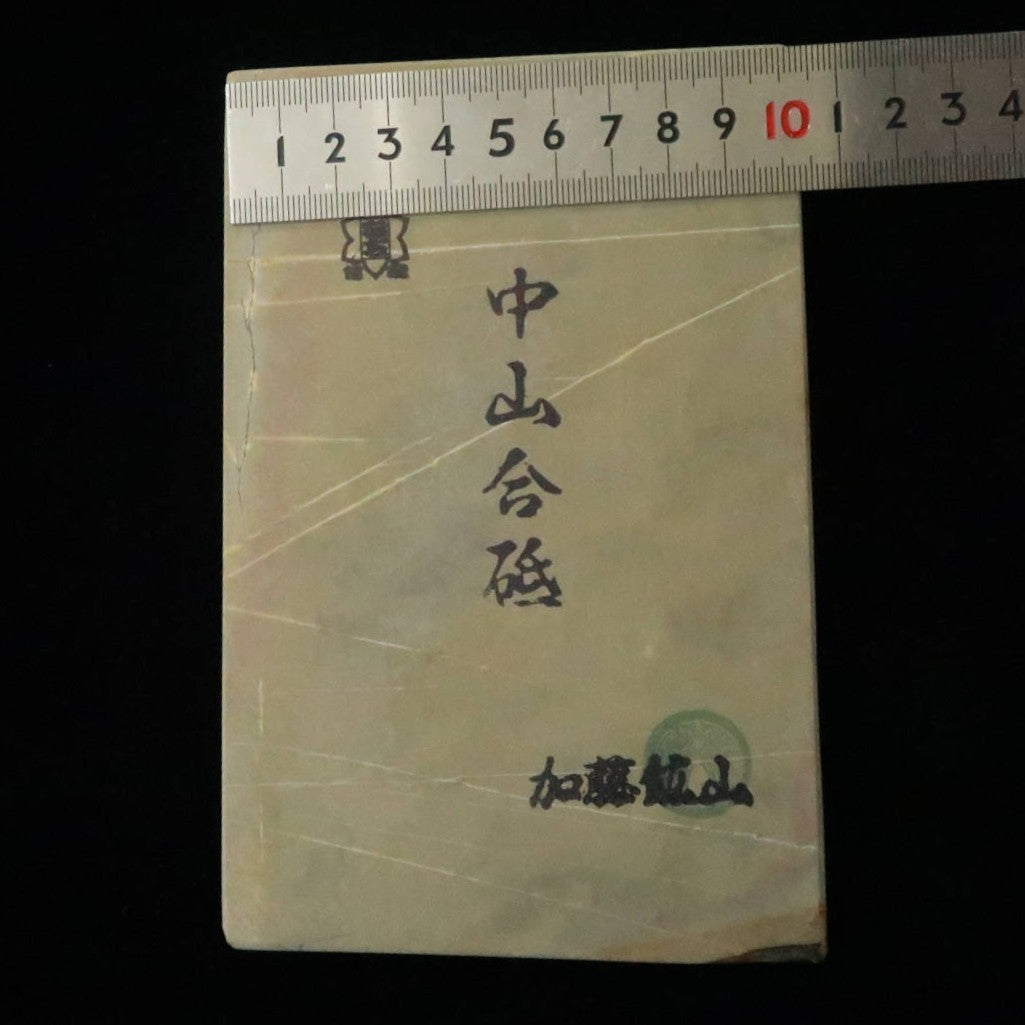 1 2 3 4 5 6 7 8 9 10 1 2 3 4
中山合砥
加藤鉱山